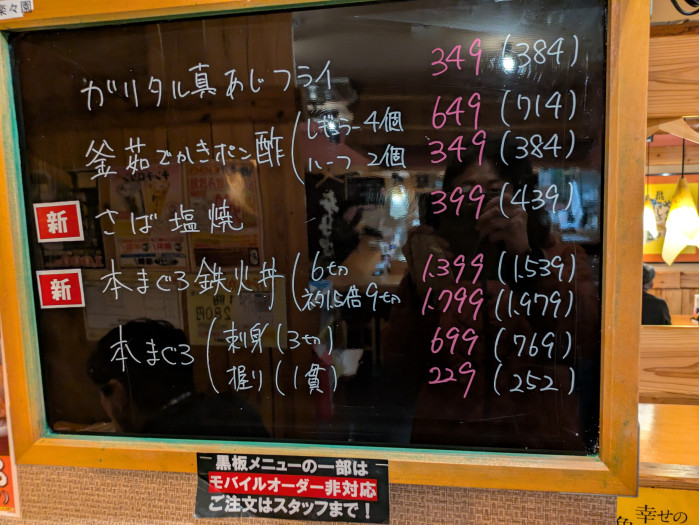 楽々園
ガリタル真あじフライ 349 (384)
釜茹でかきポン酢 (レギュラー4個 649 (714)
ハーフ 2個 349 (384)
新 さば塩焼 399 (439)
新 本まぐろ鉄火丼 (6切 1.399 (1.539)
ネタ1.5倍 9切 1.799 (1.979)
本まぐろ (刺身 (3切) 699 (769)
握り (1貫) 229 (252)
黒板メニューの一部は
モバイルオーダー非対応
ご注文はスタッフまで!
幸せの